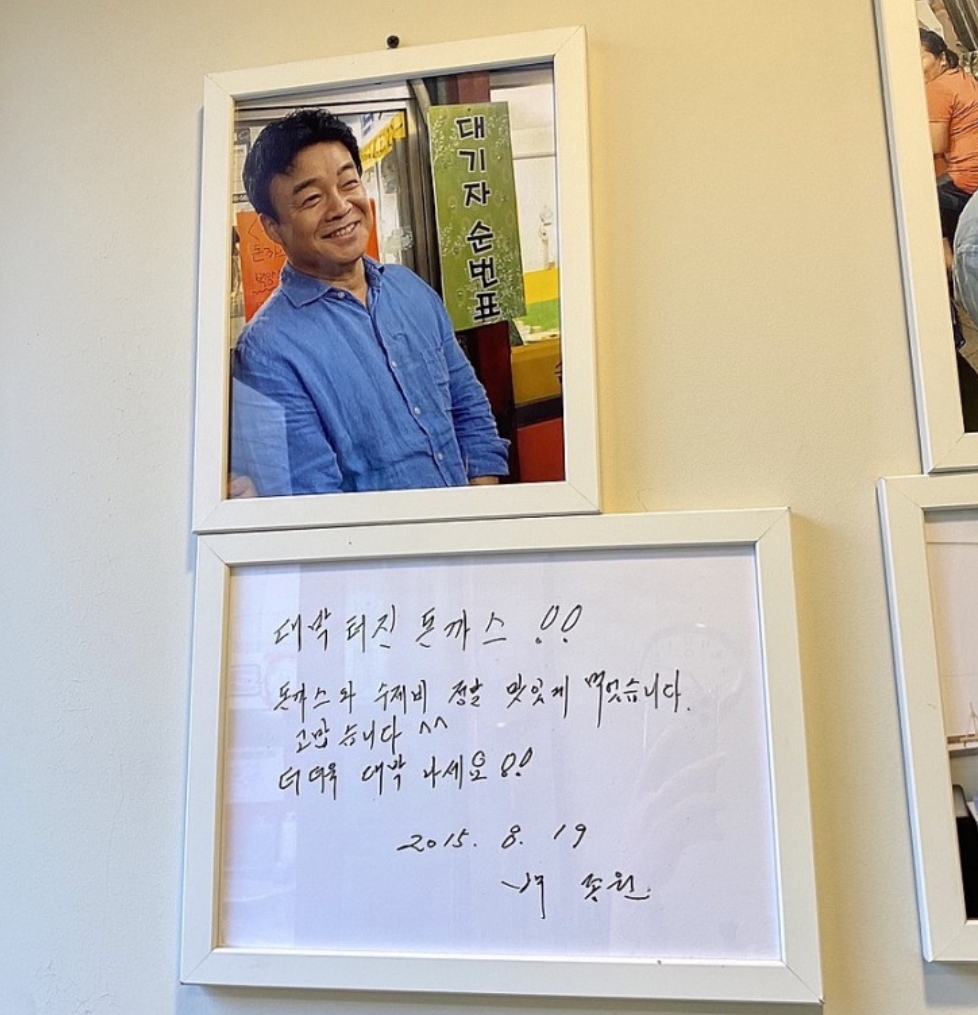 대기자 순번표
돈까스
대박 터진 돈까스 !!
돈까스와 수제비 정말 맛있게 먹었습니다.
고맙습니다 ^^
더 더욱 대박 나세요 !!
2015. 8. 19
백종원